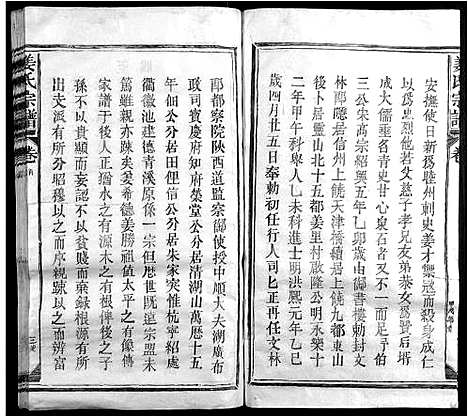 姜氏宗譜
安撫使日新為壁州刺史姜才樂冦而殺身成仁
以為史臣何若艾慈子孝兄友弟恭女為贊后壻
成大儒垂名青史甘心泉石者又不一而足于伯
三公宋高宗紹興五年乙卯歲由尚書樓勅封文
林郎隱居信州上饒天津橋嗣居上饒九都東山
卜居靈山北十五都姜里村啟隆公明永樂十
二年甲午科舉人仁未科進士明洪熙元年乙巳
歲四月廿五日奉勅初任行人司乞正再任文林
郎都察院陝西道監察御使授中順大夫湖廣布
政司寳慶府知府榮堂公分居清湖山萬曆十五
年景高公分居田俚信公分居朱家突惟杭寧紹處
衢徽池建德青溪原係一宗但歷世既遠宗盟未
篤雖親亦踈矣晏希德姜勝祖值太平之有像傳
家譜于後人正猶水之有源木之有根源之子
孫不以貴顯而妄認不以貧賤而棄録根源有所
出支派有所分昭穆以之而序親踈以之而辨富
姜氏宗譜
卷